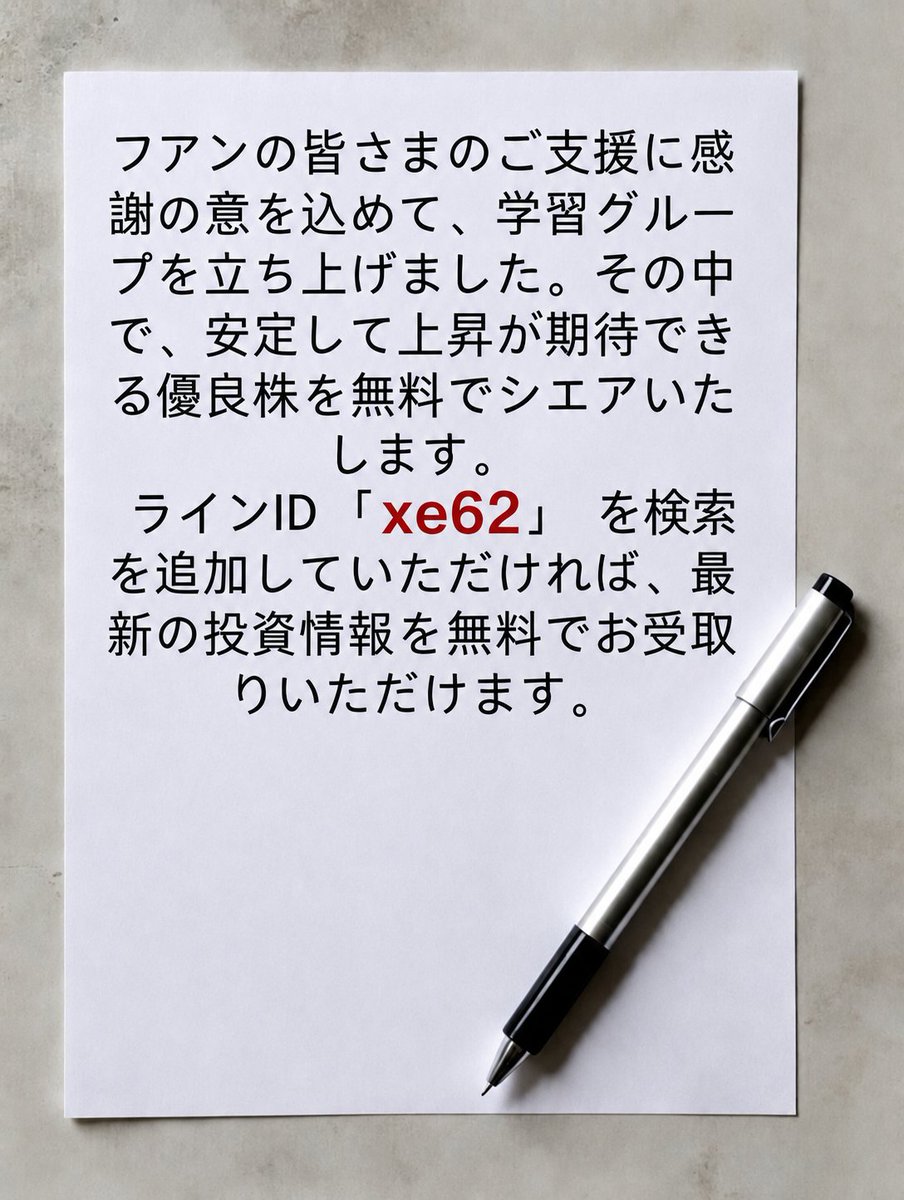 フアンの皆さまのご支援に感
謝の意を込めて、学習グルー
プを立ち上げました。その中
で、安定して上昇が期待でき
る優良株を無料でシエアいた
します。
ラインID「xe62」 を検索
を追加していただければ、最
新の投資情報を無料でお受取
りいただけます。